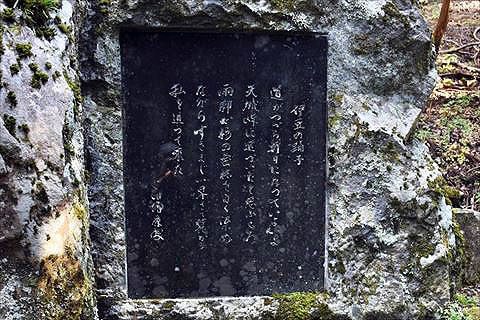 伊豆の踊子
道がつづら折りになっていよいよ
天城峠に近づいたと思うころ
雨脚が杉の密林を白く染め
ながらすさまじい早さで麓から
私を追って来た